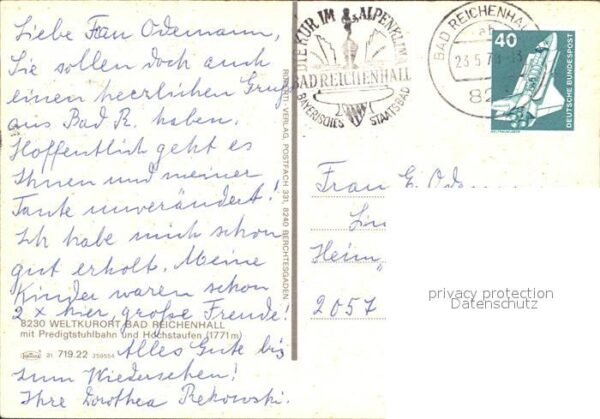 Liebe Frau Odemann,
Sie sollen doch auch
einen herzlichen Gruß
aus Bad R. haben.
Hoffentlich geht es
Ihnen und meiner
Tante unverändert!
Ich habe mich schon
gut erholt. Meine
Kinder waren schon
2 x hier, große Freude!
8230 WELTKURORT BAD REICHENHALL
mit Predigtstuhlbahn und Hochstaufen (1771 m)
21 719.22
Alles Gute bis
zum Wiedersehen!
Ihre Dorothea Rekowski.
RUPERTI-VERLAG, POSTFACH 331, 8240 BERCHTESGADEN
DIE KUR IM ALPENKLIMA
BAD REICHENHALL
BAYERISCHES STAATSBAD
BAD REICHENHALL
23.5.7
82
40
DEUTSCHE BUNDESPOST
Frau E. Odem
Lin
Heim „
2057
privacy protection
Datenschutz